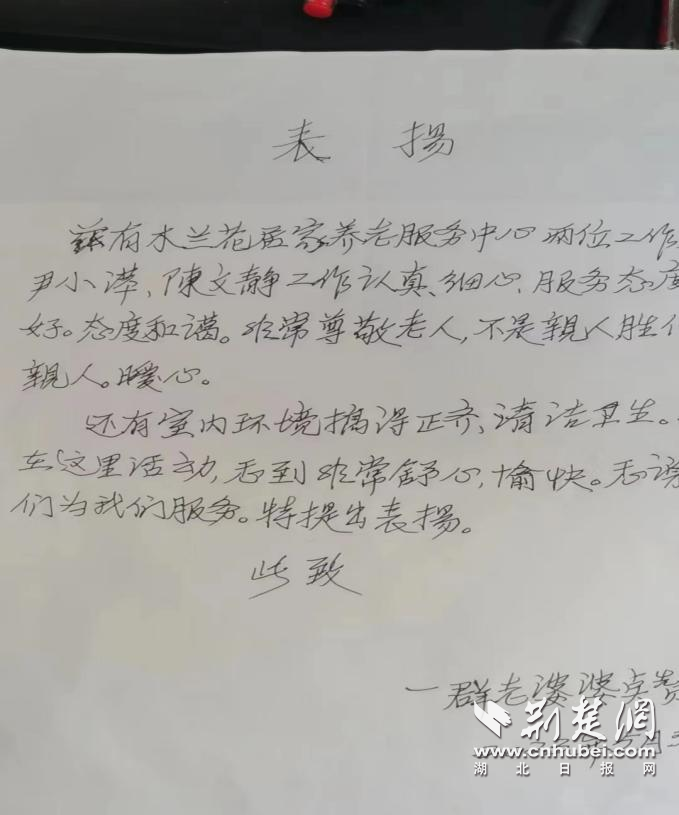 表 揚
兹有木兰花居家养老服务中心两位工作
尹小萍、陳文静工作认真、细心、服务态度
好。态度和谒。非常尊敬老人,不是親人胜似
親人。暖心。
还有室内环境搞得正齐、请洁卫生。
在这里活动,感到非常舒心,愉快。感谢
们为我们服务。特提出表揚。
此致
一群老婆婆点赞
荆楚網
www.cnhubei.com
湖北日报网